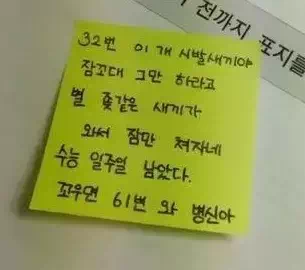 전까지 포지를
32번 이 개 시발새끼야
잠꼬대 그만 하라고
별 좆같은 새끼가
와서 잠만 쳐자네
수능 일주일 남았다.
꼬우면 61번 와 병신아